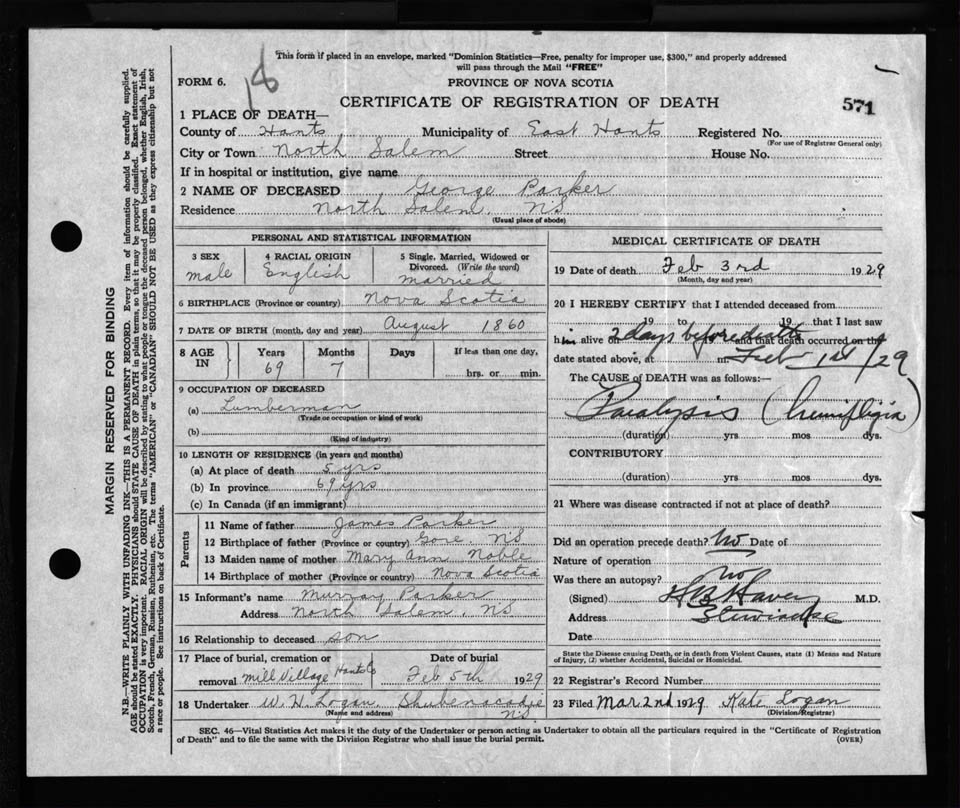 18
This form if placed in an envelope, marked "Dominion Statistics—Free, penalty for improper use, $300," and properly addressed
will pass through the Mail "FREE"
FORM 6.
PROVINCE OF NOVA SCOTIA
CERTIFICATE OF REGISTRATION OF DEATH
571
1 PLACE OF DEATH—
County of Hants Municipality of East Hants Registered No.
(For use of Registrar General only)
City or Town North Salem Street House No.
If in hospital or institution, give name
2 NAME OF DECEASED George Parker
Residence North Salem, NS
(Usual place of abode)
PERSONAL AND STATISTICAL INFORMATION
3 SEX
male
4 RACIAL ORIGIN
English
5 Single, Married, Widowed or
Divorced. (Write the word)
married
6 BIRTHPLACE (Province or country) Nova Scotia
7 DATE OF BIRTH (month, day and year) August 1860
8 AGE IN
Years Months Days If less than one day,
69 7 hrs. or min.
9 OCCUPATION OF DECEASED
(a) Lumberman
(Trade or occupation or kind of work)
(b)
(Kind of industry)
10 LENGTH OF RESIDENCE (in years and months)
(a) At place of death 5 yrs
(b) In province 69 yrs
(c) In Canada (if an immigrant)
Parents
11 Name of father James Parker
12 Birthplace of father (Province or country) Gore, NS
13 Maiden name of mother Mary Ann Noble
14 Birthplace of mother (Province or country) Nova Scotia
15 Informant's name Murray Parker
Address North Salem, NS
16 Relationship to deceased son
17 Place of burial, cremation or Date of burial
removal Mill Village Hants Co Feb 5th 1929
18 Undertaker W. H. Logan, Shubenacadie
(Name and address) NS
MEDICAL CERTIFICATE OF DEATH
19 Date of death Feb 3rd 1929
(Month, day and year)
20 I HEREBY CERTIFY that I attended deceased from
19 to 19 that I last saw
him alive on 2 days before death and that death occurred on the
date stated above, at m. Feb 1st /29
The CAUSE of DEATH was as follows:—
Paralysis (hemifligia)
(duration) yrs mos dys.
CONTRIBUTORY
(duration) yrs mos dys.
21 Where was disease contracted if not at place of death?
Did an operation precede death? No Date of
Nature of operation
Was there an autopsy? no
(Signed) M.D.
Address
Date
State the Disease causing Death, or in death from Violent Causes, state (1) Means and Nature
of Injury, (2) whether Accidental, Suicidal or Homicidal.
22 Registrar's Record Number
23 Filed Mar 2nd 1929 Kate Logan
(Division Registrar)
SEC. 46—Vital Statistics Act makes it the duty of the Undertaker or person acting as Undertaker to obtain all the particulars required in the "Certificate of Registration
of Death" and to file the same with the Division Registrar who shall issue the burial permit. (OVER)
MARGIN RESERVED FOR BINDING
N.B.—WRITE PLAINLY WITH UNFADING INK—THIS IS A PERMANENT RECORD. Every item of information should be carefully supplied.
AGE should be stated EXACTLY. PHYSICIANS should STATE CAUSE OF DEATH in plain terms, so that it may be properly classified. Exact statement of
OCCUPATION is very important. RACIAL ORIGIN will be described by stating to what people or tongue the deceased person belonged, whether English, Irish,
Scotch, French, German, Russian, Ruthenian, etc. The terms "AMERICAN" or "CANADIAN" SHOULD NOT BE USED as they express citizenship but not
a race or people. See instructions on back of Certificate.